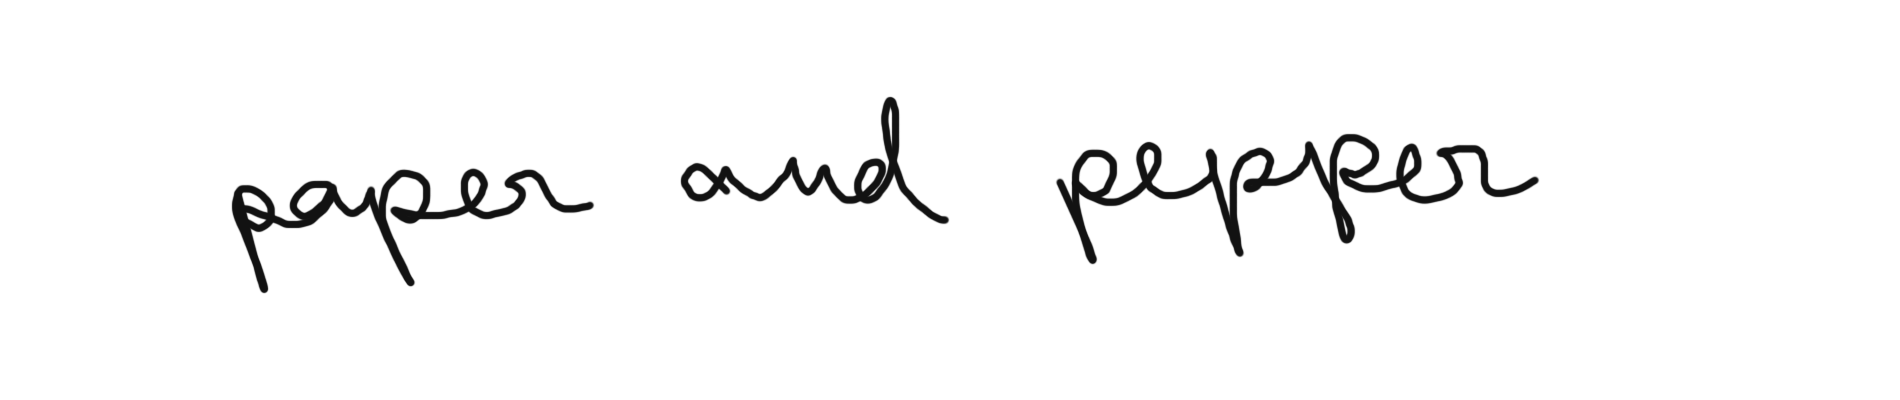 paper and pepper